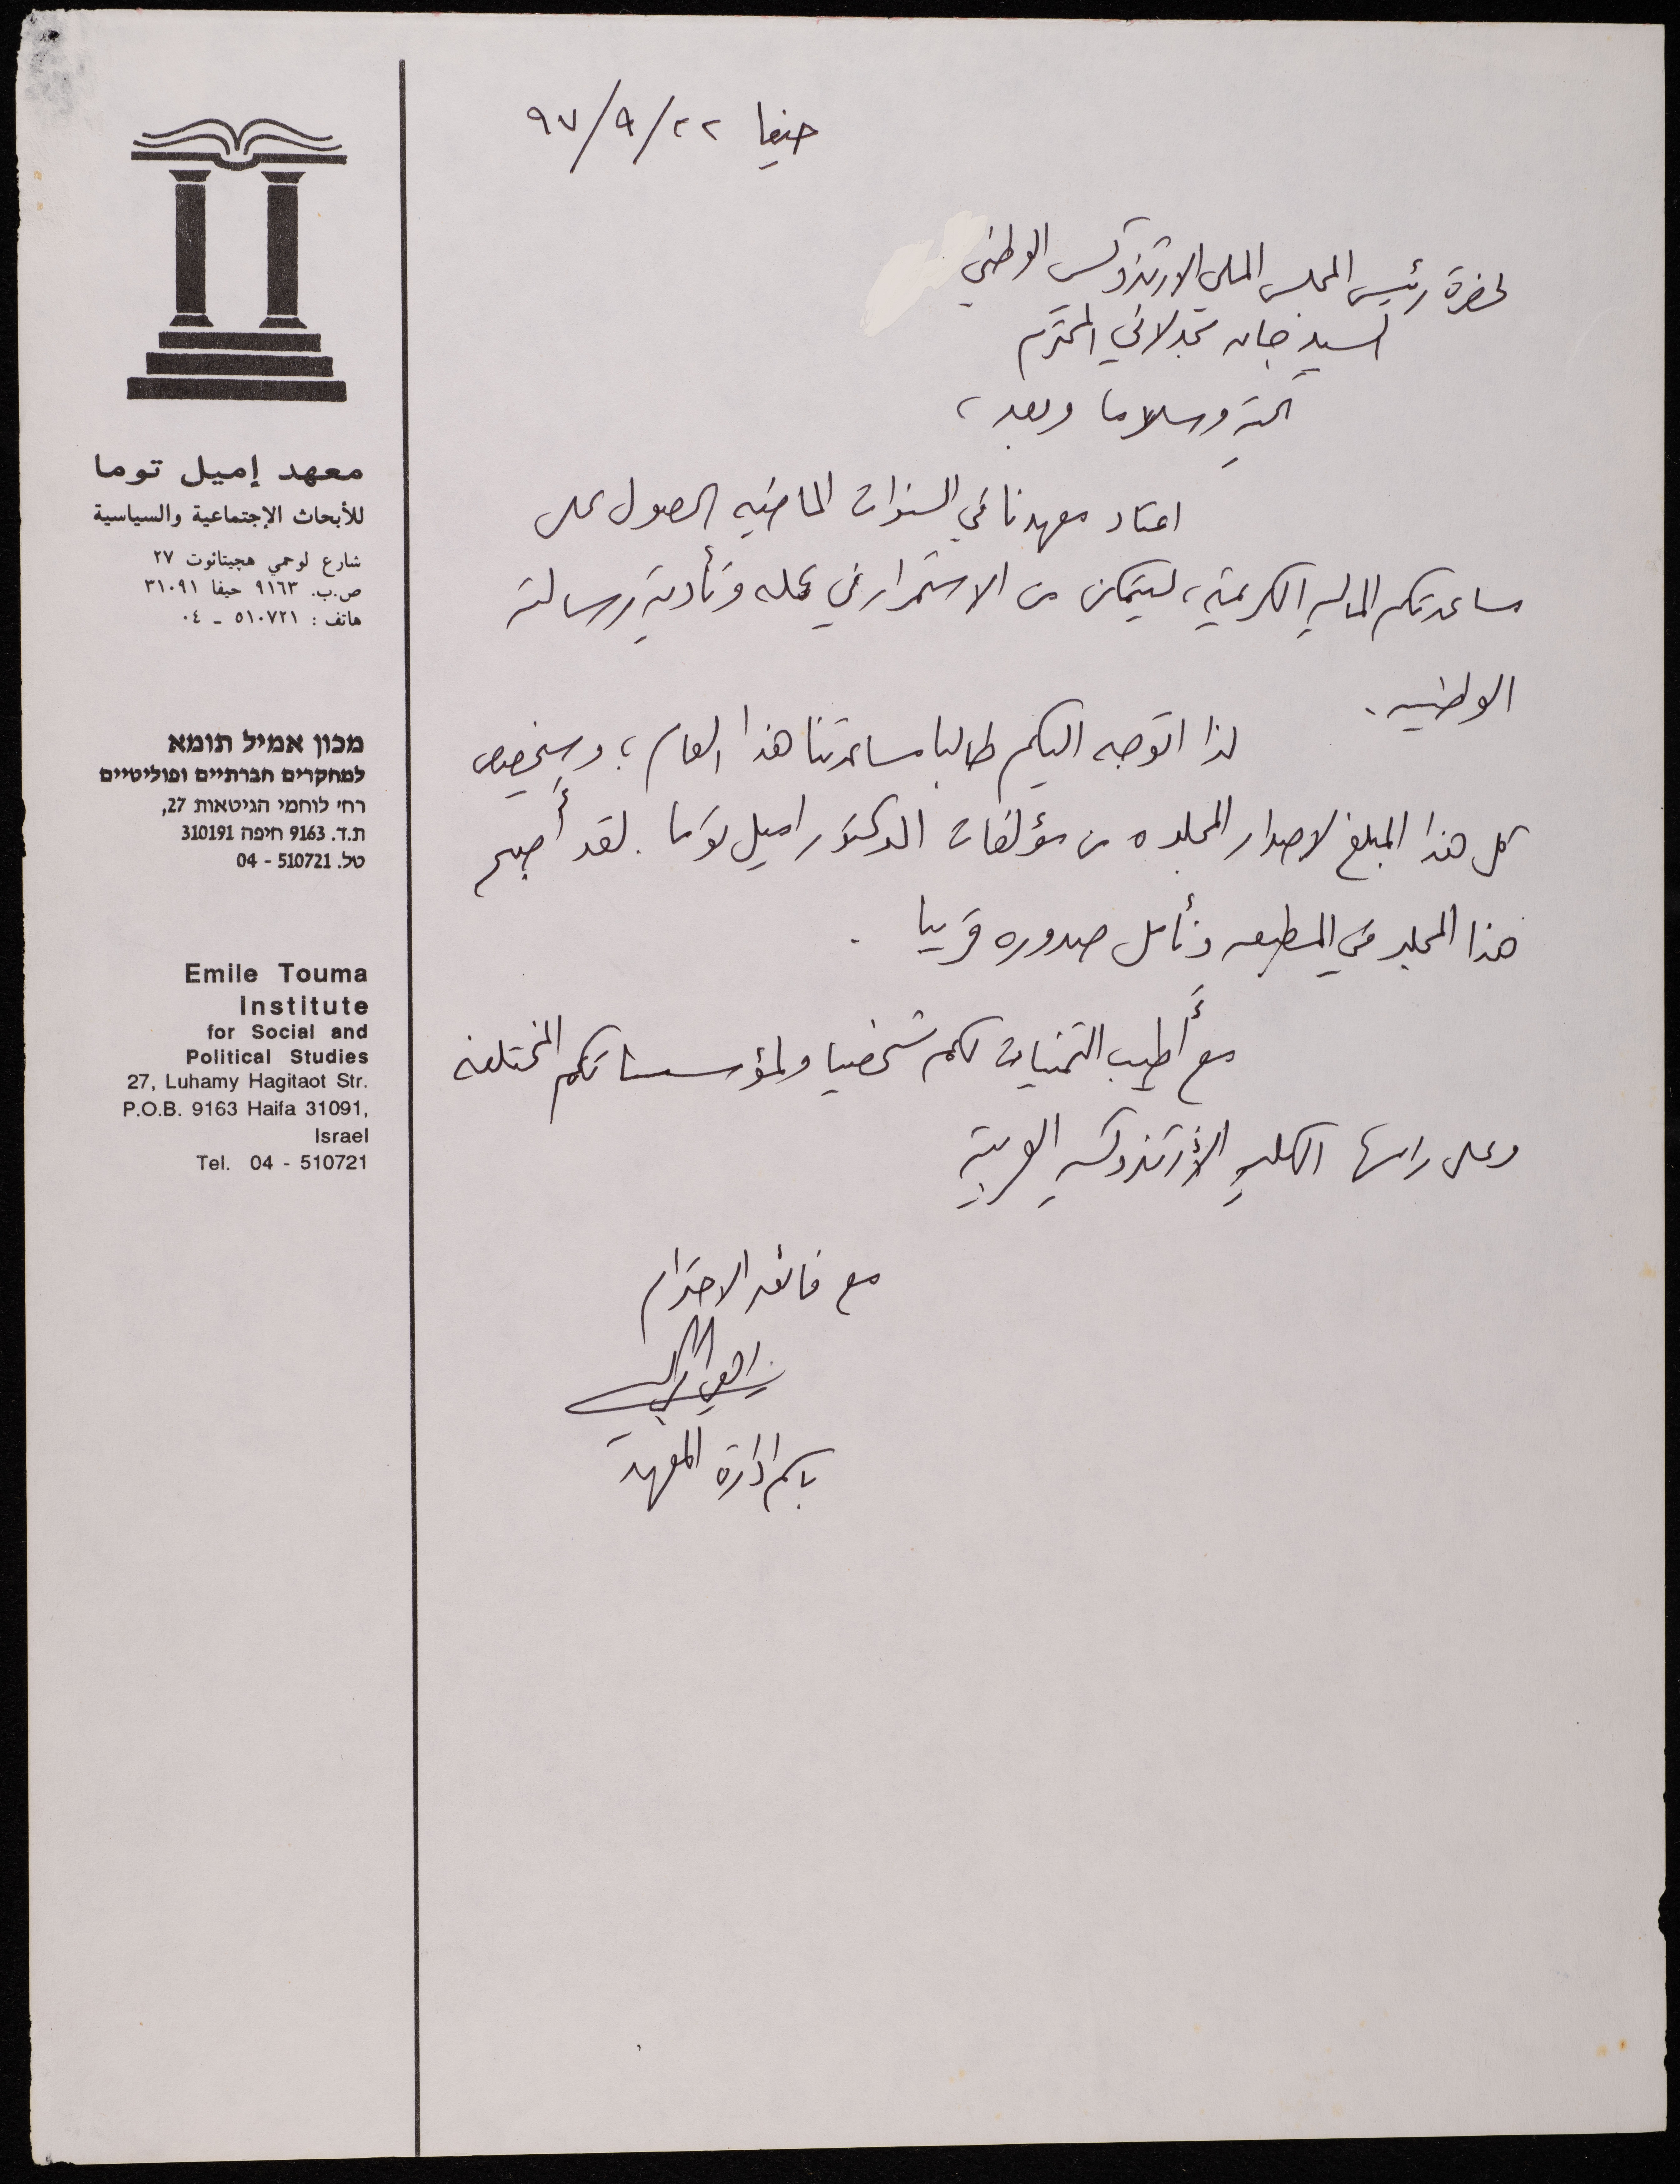 معهد إميل توما
للأبحاث الإجتماعية والسياسية
شارع لوحمي هجيتانوت ٢٧
ص.ب. ٩١٦٣ حيفا ٣١٠٩١
هاتف : ٥١٠٧٢١ ـ ٠٤
מכון אמיל תומא
למחקרים חברתיים ופוליטיים
רחי לוחמי הגיטאות 27,
ת.ד. 9163 חיפה 310191
טל. 510721 - 04
Emile Touma
Institute
for Social and
Political Studies
27, Luhamy Hagitaot Str.
P.O.B. 9163 Haifa 31091,
Israel
Tel. 04 - 510721
حيفا ٢٢/٩/٩٧
لحضرة رئيس المجلس الملي الارثوذكسي الوطني
السيد جان مجدلاني المحترم
تحية وسلاما وبعد،
اعتاد معهدنا في السنوات الماضيه الحصول على
مساعدتكم الماليه الكريمة، ليتمكن من الاستمرار في عمله وتأدية رسالته
الوطنيه.
لذا اتوجه اليكم طالبا مساعدتنا هذا العام، وسيخصص
كل هذا المبلغ لاصدار المجلد ٥ من مؤلفات الدكتور اميل توما. لقد أصبح
هذا المجلد في المطبعه ونأمل صدوره قريبا.
مع أطيب التمنيات لكم شخصيا ولمؤسساتكم المختلفه
وعلى راسها الكليه الأرثوذكسيه العربية
مع فائق الاحترام
باسم ادارة المعهد